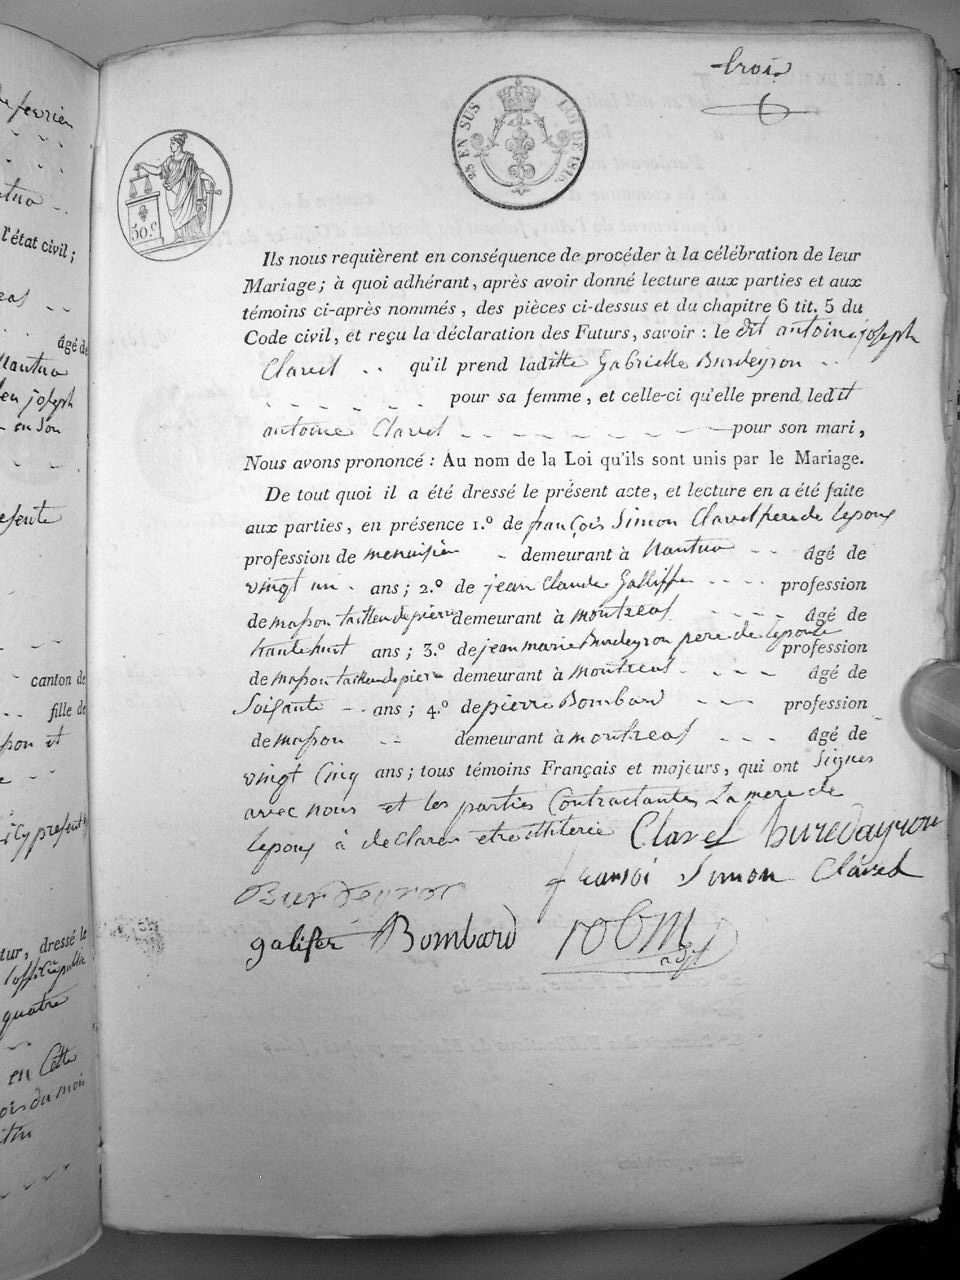 trois
6
25 EN SUS
LOI DE 1816.
50 c
Ils nous requièrent en conséquence de procéder à la célébration de leur
Mariage; à quoi adhérant, après avoir donné lecture aux parties et aux
témoins ci-après nommés, des pièces ci-dessus et du chapitre 6 tit. 5 du
Code civil, et reçu la déclaration des Futurs, savoir : le dit antoine joseph
Claret .. qu'il prend laditte Gabrielle Burdeyron ..
pour sa femme, et celle-ci qu'elle prend ledit
antoine Claret pour son mari,
Nous avons prononcé : Au nom de la Loi qu'ils sont unis par le Mariage.
De tout quoi il a été dressé le présent acte, et lecture en a été faite
aux parties, en présence 1.º de françois Simon Claret pere de lepoux
profession de menuisier demeurant à Nantua âgé de
vingt un ans; 2.º de jean Claude Galliffe profession
de masson tailleur de pierre demeurant à montreal âgé de
trante huit ans; 3.º de jean marie Burdeyron pere de lepouse profession
de masson tailleur de pierre demeurant à montreal âgé de
Soisante ans; 4.º de pierre Bombard profession
de masson demeurant à montreal âgé de
vingt Cinq ans; tous témoins Français et majeurs, qui ont Signes
avec nous et les parties Contractantes La mere de
lepoux à declarer etre illiterie Claret buredayron
Burdeyron fransoi Simon Claret
galifer Bombard
de fevrier
l'état civil;
âgé de
Nantua
joseph
en son
canton de
fille de
et
icy present
tur, dressé le
quatre
en Cette
du mois